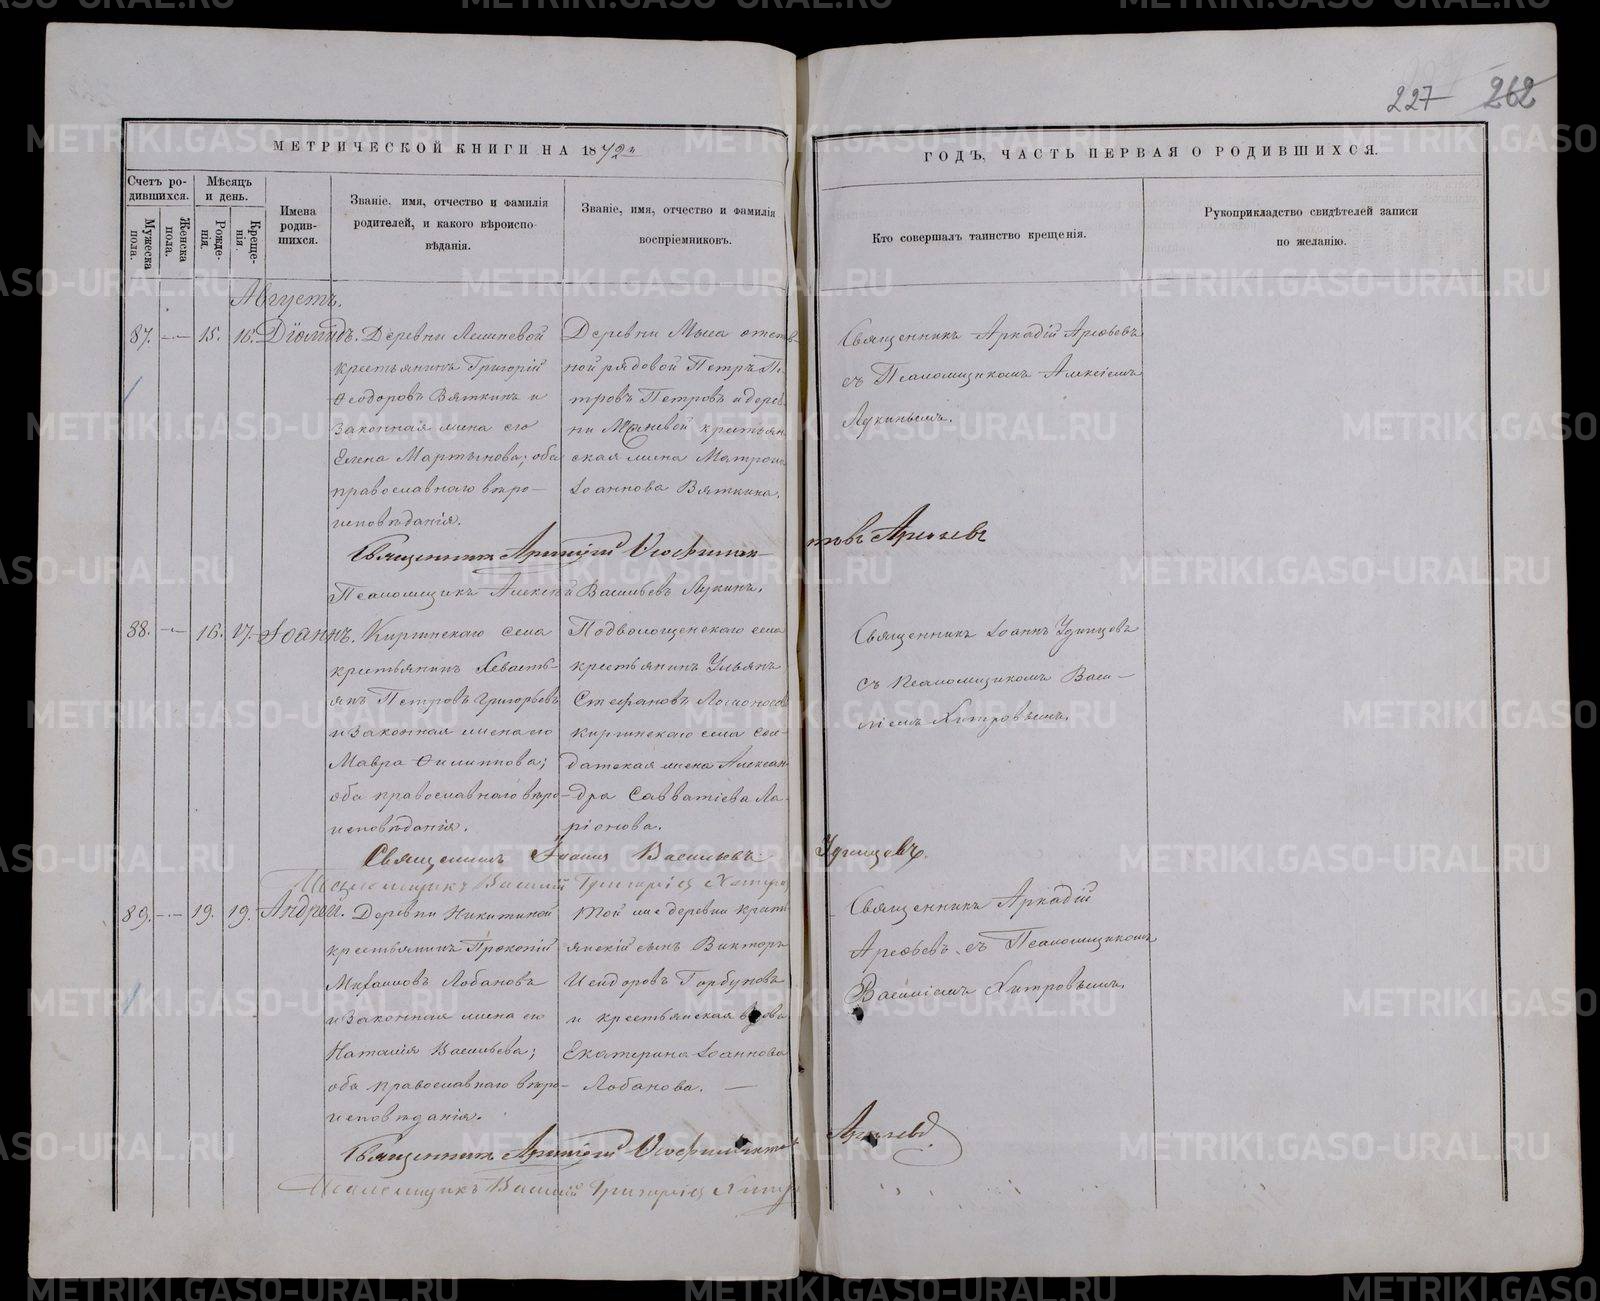 227 262
МЕТРИЧЕСКОЙ КНИГИ НА 1872й
ГОДЪ, ЧАСТЬ ПЕРВАЯ О РОДИВШИХСЯ.
Счетъ ро-
дившихся.
Мужеска пола.
Женска пола.
Мѣсяцъ
и день.
Рожде-
нія.
Креще-
нія.
Имена
родив-
шихся.
Званіе, имя, отчество и фамилія
родителей, и какого вѣроиспо-
вѣданія.
Званіе, имя, отчество и фамилія
воспріемниковъ.
Кто совершалъ таинство крещенія.
Рукоприкладство свидѣтелей записи
по желанію.
Августъ.
87. 15. 16. Діомидъ.
Деревни
крестьянинъ Григорій
Ѳеодоровъ Вяткинъ и
законная жена его
Елена Мартынова; оба
православнаго вѣро-
исповѣданія.
Деревни Мыса отстав
ной рядовой Петръ Пе
тровъ Петровъ и дерев
ни крестьян
ская жена Матрона
Іоаннова Вяткина.
Священникъ Аркадій Арефьевъ
съ Псаломщикомъ Алексіемъ
Лукинымъ.
Священникъ Аркадій Арефьевъ
Псаломщикъ Алексѣй Васильевъ Лукинъ.
88. 16. 17. Іоаннъ.
Киргинскаго села
крестьянинъ Севасть-
янъ Петровъ Григорьевъ
и законная жена его
Мавра Филиппова;
оба православнаго вѣро-
исповѣданія.
Подволошенскаго села
крестьянинъ Ульянъ
Стефановъ Ломоносов
Киргинскаго села сол
датская жена Алексан
дра Савватіева Ла
ріонова.
Священникъ Іоаннъ Удинцовъ
съ псаломщикомъ Васи-
ліемъ Хитровымъ.
Священникъ Іоаннъ Васильевъ Удинцовъ.
Псаломщикъ Василій Григорьевъ Хитров
89. 19. 19. Андрей.
Деревни Никитиной
крестьянинъ Прокопій
Михаиловъ Лобановъ
и законная жена его
Наталія Васильева;
оба православнаго вѣро-
исповѣданія.
Той же деревни кресть
янскій сынъ Викторъ
Исидоровъ Горбуновъ
и крестьянская вдова
Екатерина Іоаннова
Лобанова.
Священникъ Аркадій
Арефьевъ съ Псаломщикомъ
Василіемъ Хитровымъ.
Священникъ Аркадій Арефьевъ.
Псаломщикъ Василій Григорьевъ Хитр
METRIKI.GASO-URAL.RU